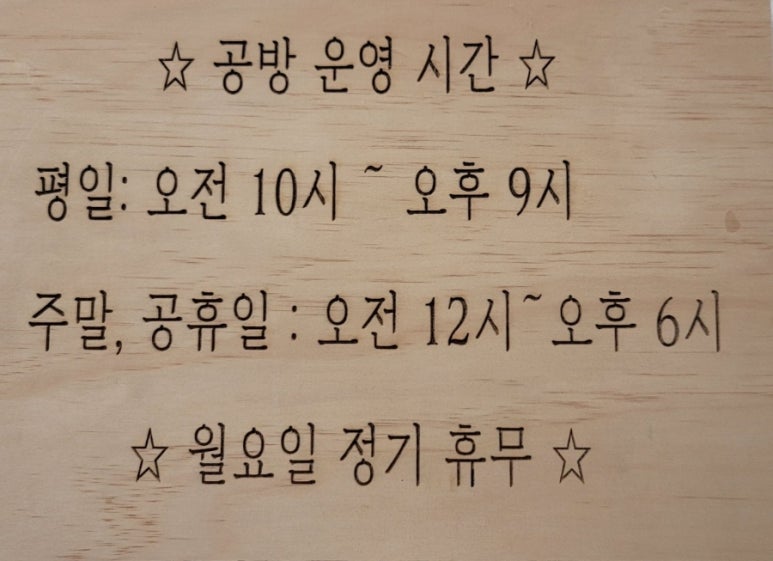 ☆ 공방 운영 시간 ☆
평일: 오전 10시 ~ 오후 9시
주말, 공휴일 : 오전 12시~오후 6시
☆ 월요일 정기 휴무 ☆